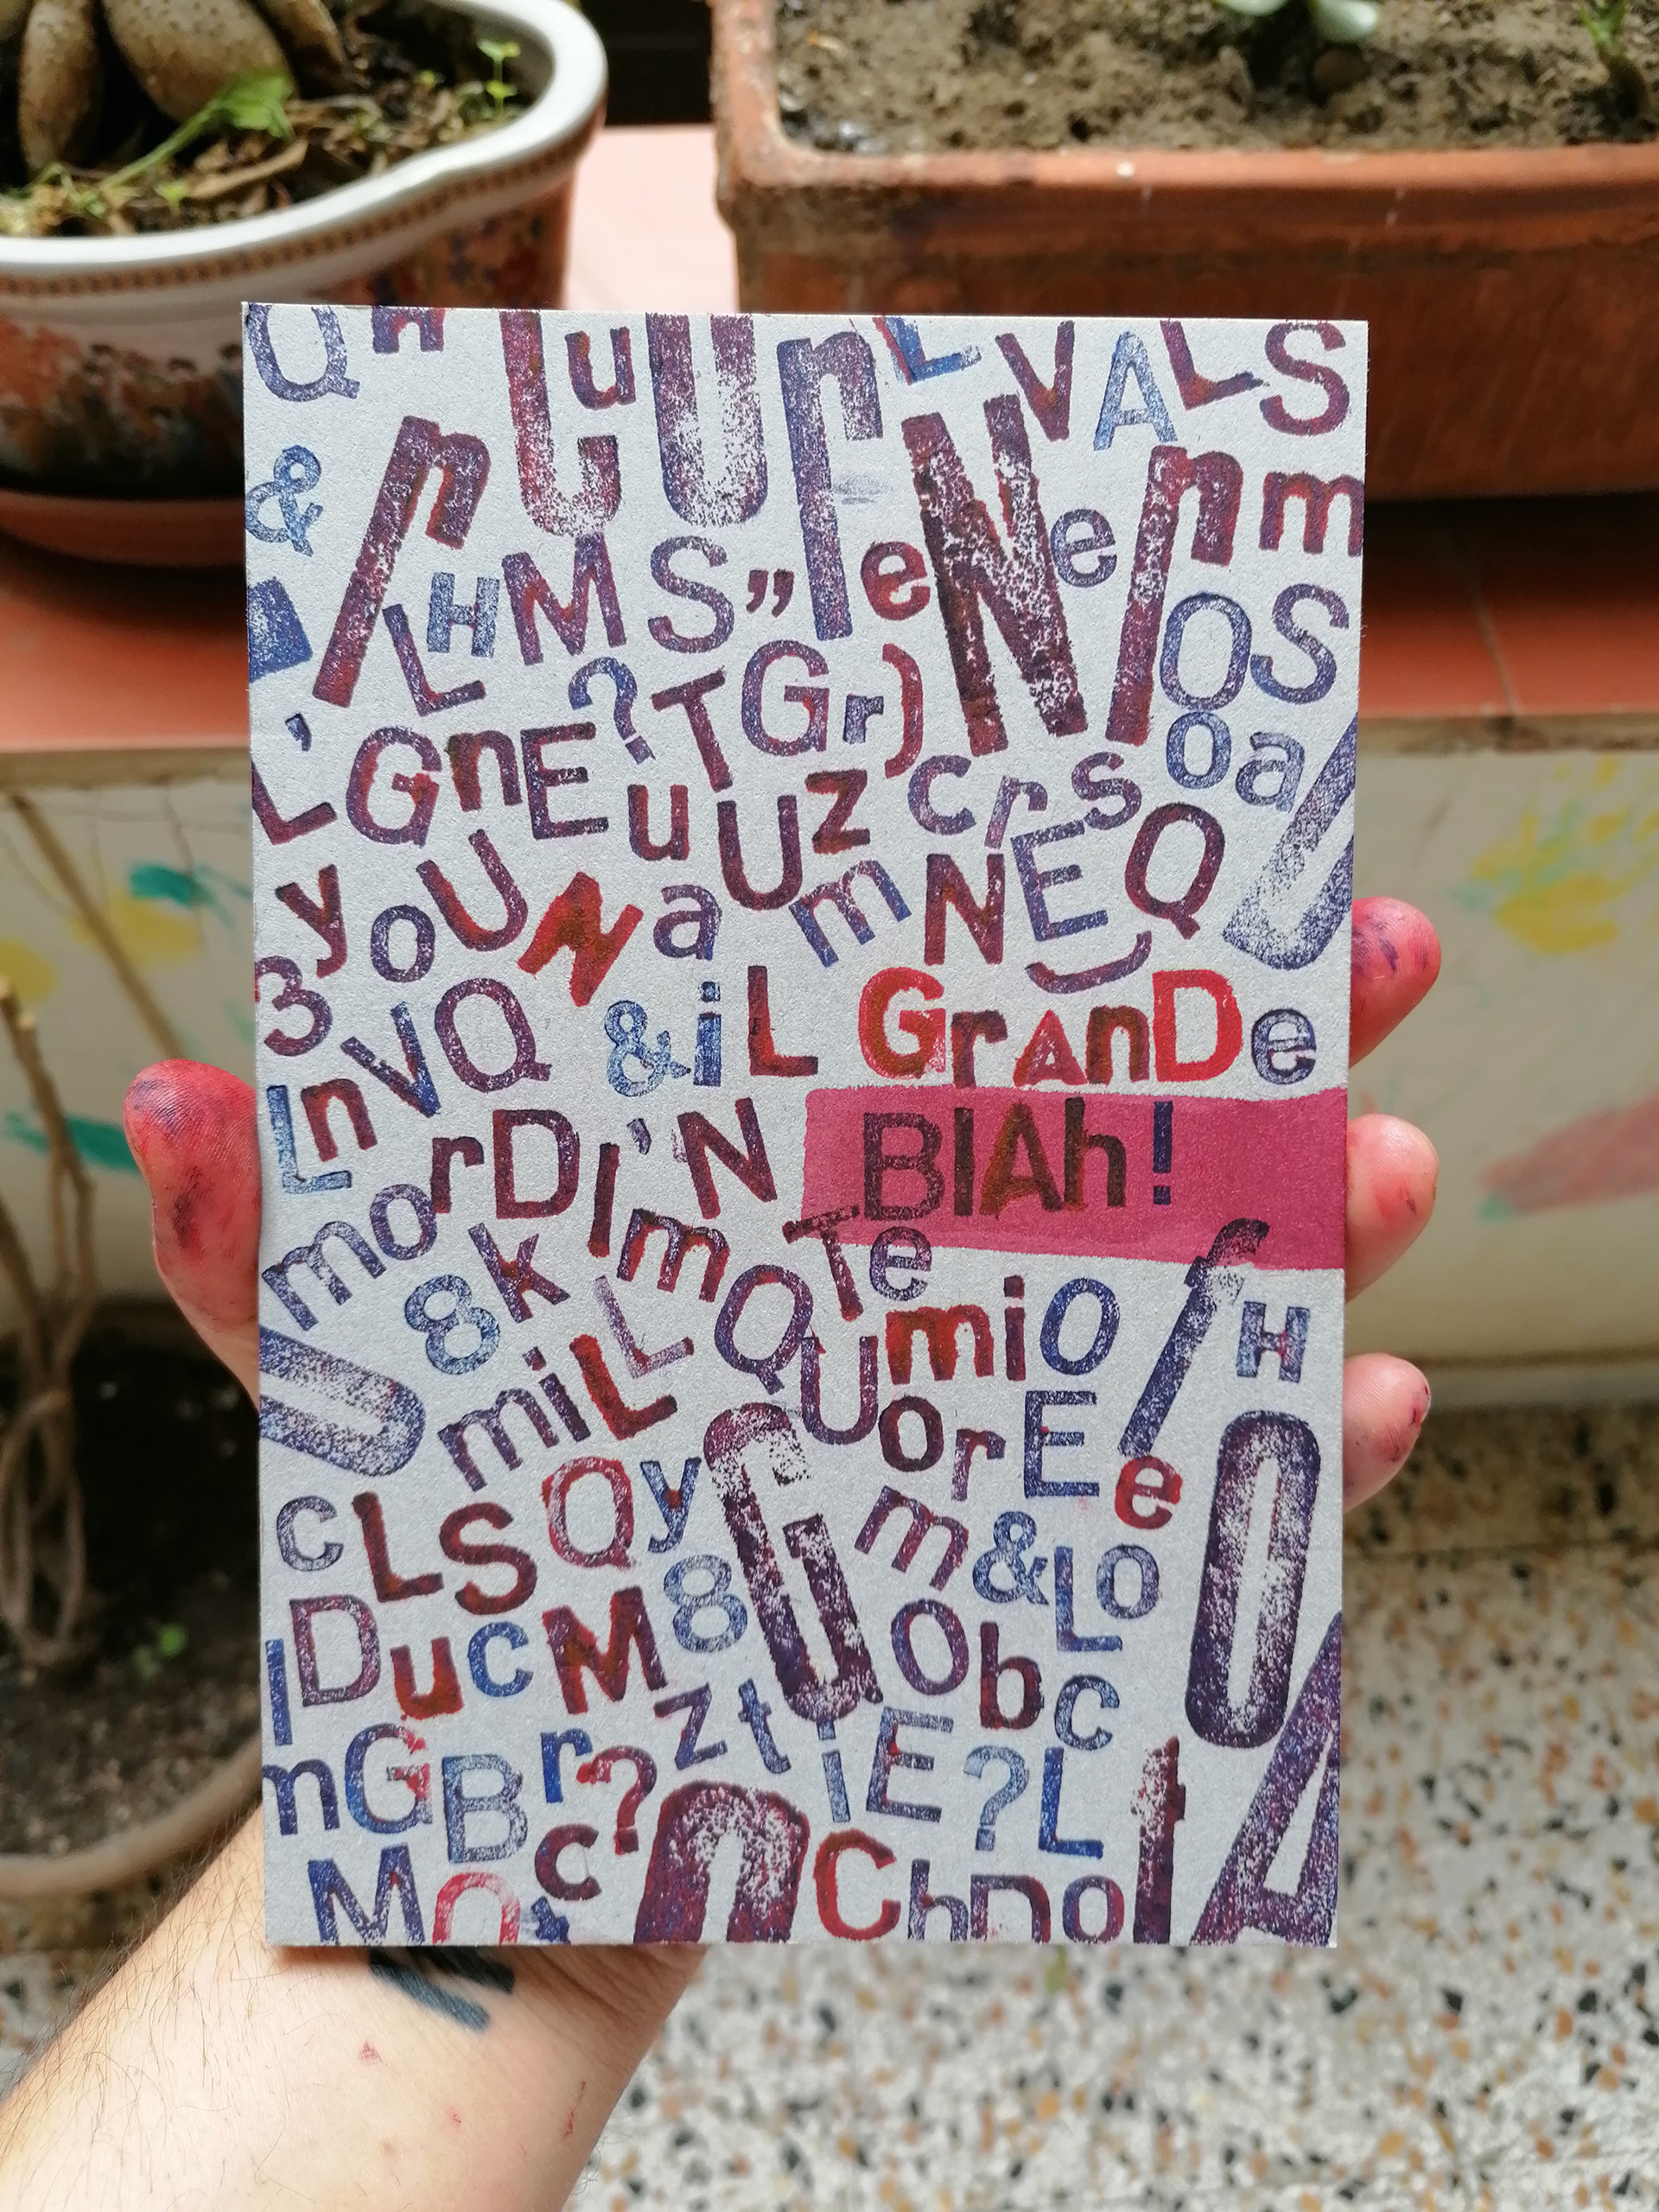 Q n U u U r L V A L S
& r N e r m
L H M S ” e O S
’ ? T G r ) o a
L G n E u U z c r s Q U
y o U N a m N E )
3 V Q & iL GrAnDe
L n r D I ’ N BlAh!
m o k I m T e
8 Q U m i O r H
U m i L L o r E e
c L S Q y G m & L o O
D u c M 8 O b c
I z t
m G B r ? i E ? L t A
M c n C h n o